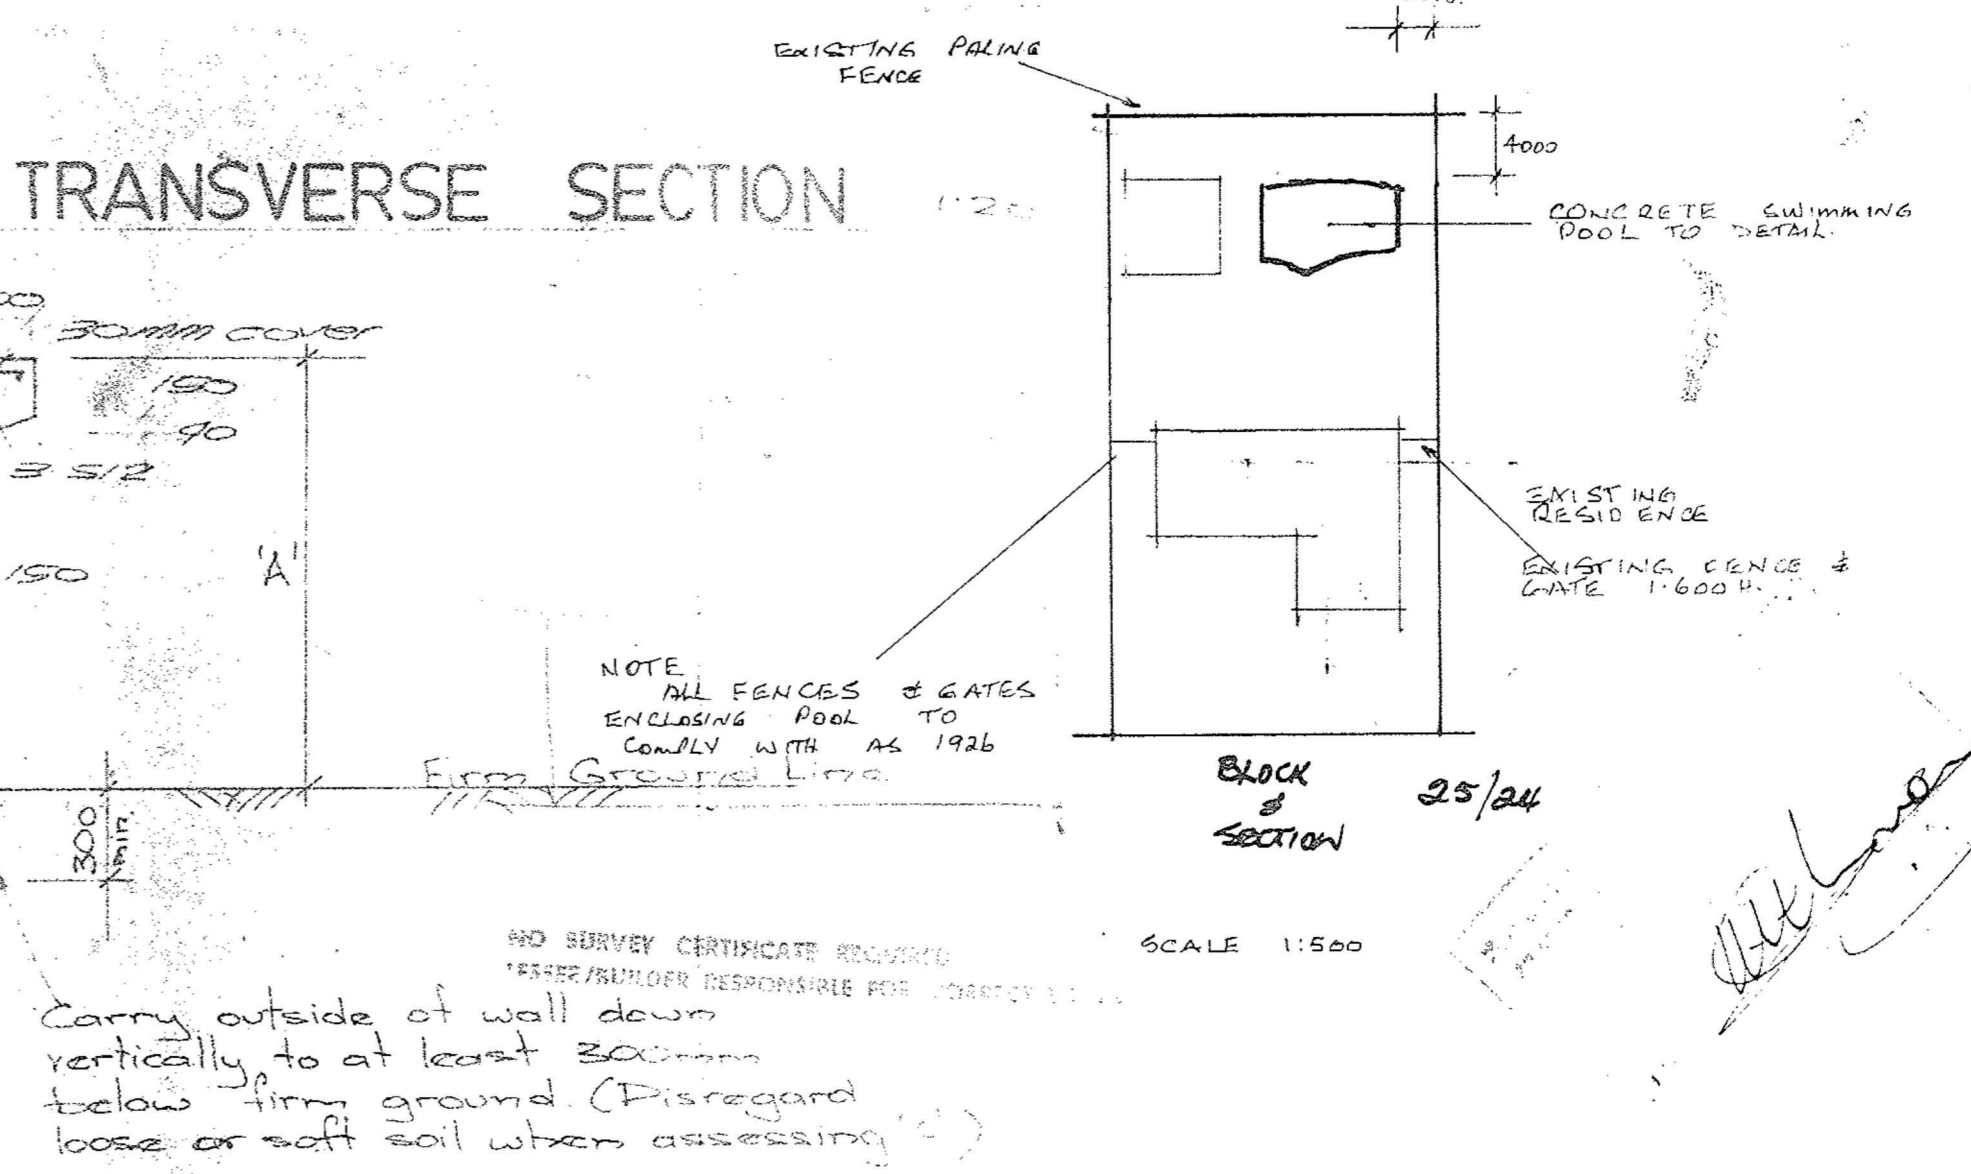 EXISTING PALING
FENCE
4000
TRANSVERSE SECTION 1:20
CONCRETE SWIMMING
POOL TO DETAIL.
30mm cover
150
40
3 S12
150
'A'
EXISTING
RESIDENCE
EXISTING FENCE &
GATE 1.600 H.
NOTE
ALL FENCES & GATES
ENCLOSING POOL TO
COMPLY WITH AS 1926
Firm Ground Line
300
min.
BLOCK
&
SECTION
25/24
NO SURVEY CERTIFICATE REQUIRED
LESSEE/BUILDER RESPONSIBLE FOR CORRECT
SCALE 1:500
Carry outside of wall down
vertically to at least 300mm
below firm ground. (Disregard
loose or soft soil when assessing